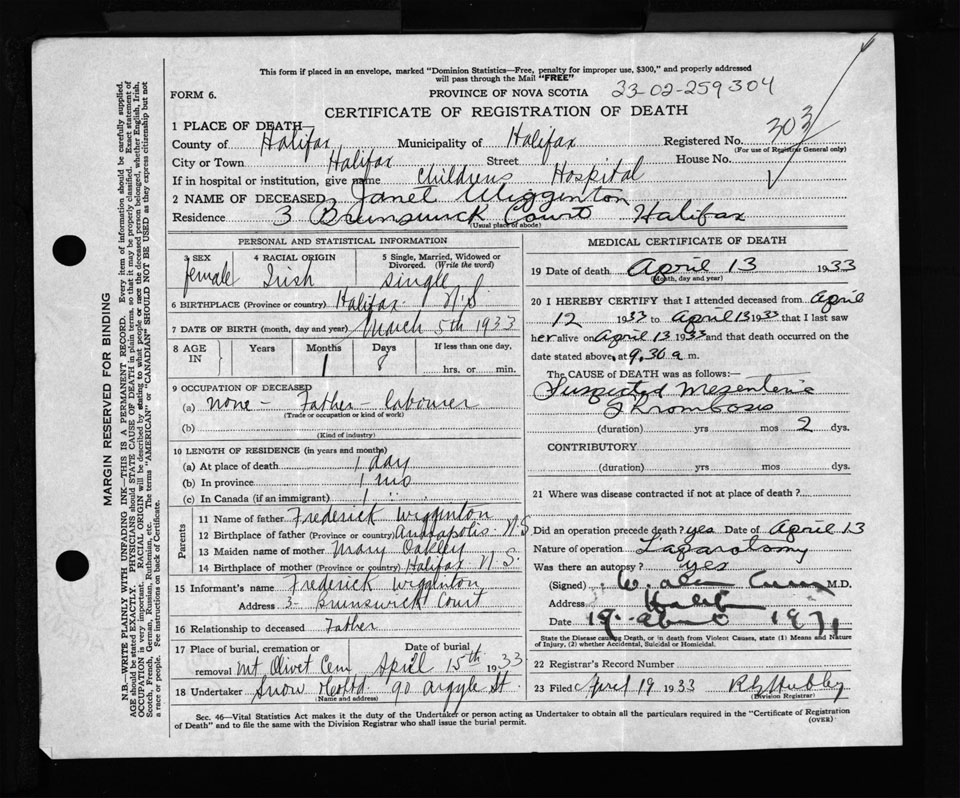 This form if placed in an envelope, marked "Dominion Statistics—Free, penalty for improper use, $300," and properly addressed
will pass through the Mail "FREE"
FORM 6.
PROVINCE OF NOVA SCOTIA 33-02-259304
CERTIFICATE OF REGISTRATION OF DEATH
1 PLACE OF DEATH—
County of Halifax Municipality of Halifax Registered No. 303
(For use of Registrar General only)
City or Town Halifax Street House No.
If in hospital or institution, give name Childrens Hospital
2 NAME OF DECEASED Janet Wigginton
Residence 3 Brunswick Court Halifax
(Usual place of abode)
PERSONAL AND STATISTICAL INFORMATION
3 SEX 4 RACIAL ORIGIN 5 Single, Married, Widowed or
Divorced. (Write the word)
female Irish Single
6 BIRTHPLACE (Province or country) Halifax N.S
7 DATE OF BIRTH (month, day and year) March 5th 1933
8 AGE IN Years Months Days If less than one day,
1 8 hrs. or min.
9 OCCUPATION OF DECEASED
(a) none - Father - labourer
(Trade or occupation or kind of work)
(b)
(Kind of industry)
10 LENGTH OF RESIDENCE (in years and months)
(a) At place of death 1 day
(b) In province 1 mo
(c) In Canada (if an immigrant) 1 "
Parents
11 Name of father Frederick Wigginton
12 Birthplace of father (Province or country) Annapolis N.S
13 Maiden name of mother Mary Oakley
14 Birthplace of mother (Province or country) Halifax N S
15 Informant's name Frederick Wigginton
Address 3- Brunswick Court
16 Relationship to deceased Father
17 Place of burial, cremation or Date of burial
removal Mt Olivet Cem April 15th 1933
18 Undertaker Snow & Co Ltd. 90 Argyle St
(Name and address)
MEDICAL CERTIFICATE OF DEATH
19 Date of death April 13 1933
(Month, day and year)
20 I HEREBY CERTIFY that I attended deceased from April
12 1933 to April 13 1933 that I last saw
her alive on April 13 1933 and that death occurred on the
date stated above, at 9.30 a m.
The CAUSE OF DEATH was as follows:—
Suspected Mesenteric
Thrombosis
(duration) yrs mos 2 dys.
CONTRIBUTORY
(duration) yrs. mos. dys.
21 Where was disease contracted if not at place of death?
Did an operation precede death? yes Date of April 13
Nature of operation Laparotomy
Was there an autopsy? yes
(Signed) M.D.
Address
Date
State the Disease causing Death, or in death from Violent Causes, state (1) Means and Nature
of Injury, (2) whether Accidental, Suicidal or Homicidal.
22 Registrar's Record Number
23 Filed April 19 1933
(Division Registrar)
Sec. 46—Vital Statistics Act makes it the duty of the Undertaker or person acting as Undertaker to obtain all the particulars required in the "Certificate of Registration
of Death" and to file the same with the Division Registrar who shall issue the burial permit. (OVER)
MARGIN RESERVED FOR BINDING
N.B.—WRITE PLAINLY WITH UNFADING INK—THIS IS A PERMANENT RECORD. Every item of information should be carefully supplied.
AGE should be stated EXACTLY. PHYSICIANS should STATE CAUSE OF DEATH in plain terms, so that it may be properly classified. Exact statement of
OCCUPATION is very important. RACIAL ORIGIN will be described by stating to what people or race the deceased person belonged, whether English, Irish,
Scotch, French, German, Russian, Ruthenian, etc. The terms "AMERICAN" or "CANADIAN" SHOULD NOT BE USED as they express citizenship but not
a race or people. Fee instructions on back of Certificate.